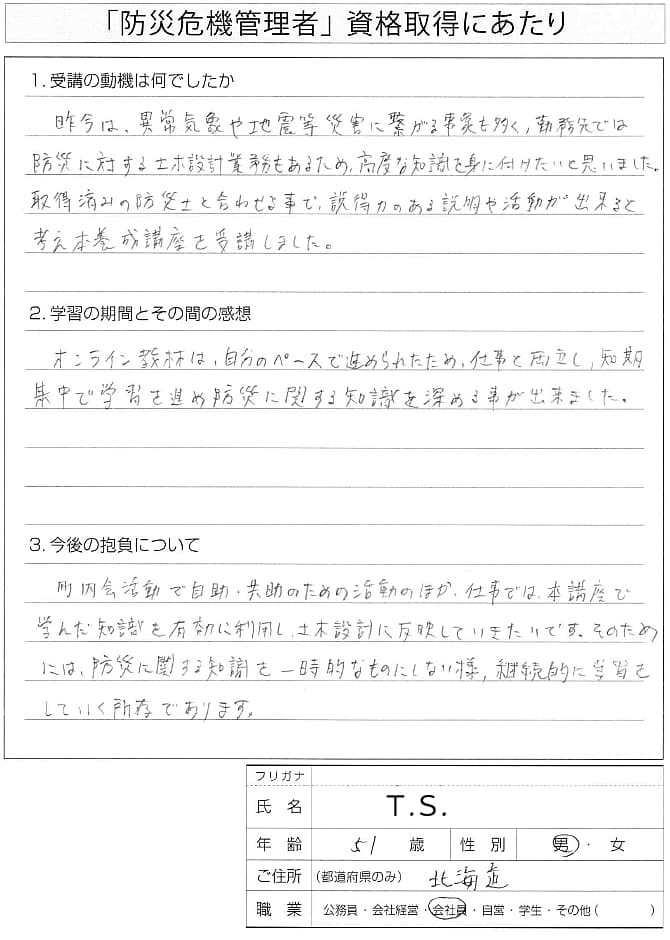 「防災危機管理者」資格取得にあたり
1. 受講の動機は何でしたか
昨今は、異常気象や地震等災害に繋がる事象も多く、勤務先では
防災に対する土木設計業務もあるため、高度な知識を身に付けたいと思いました。
取得済みの防災士と合わせる事で、説得力のある説明や活動が出来ると
考え本養成講座を受講しました。
2. 学習の期間とその間の感想
オンライン教材は、自分のペースで進められたため、仕事と両立し、短期
集中で学習を進め防災に関する知識を深める事が出来ました。
3. 今後の抱負について
町内会活動で自助・共助のための活動のほか、仕事では、本講座で
学んだ知識を有効に利用し、土木設計に反映していきたいです。そのため
には、防災に関する知識を一時的なものにしない様、継続的に学習を
していく所存であります。
フリガナ
氏 名 T.S.
年 齢 51 歳 性 別 男・女
ご住所 (都道府県のみ) 北海道
職 業 公務員・会社経営・会社員・自営・学生・その他( )